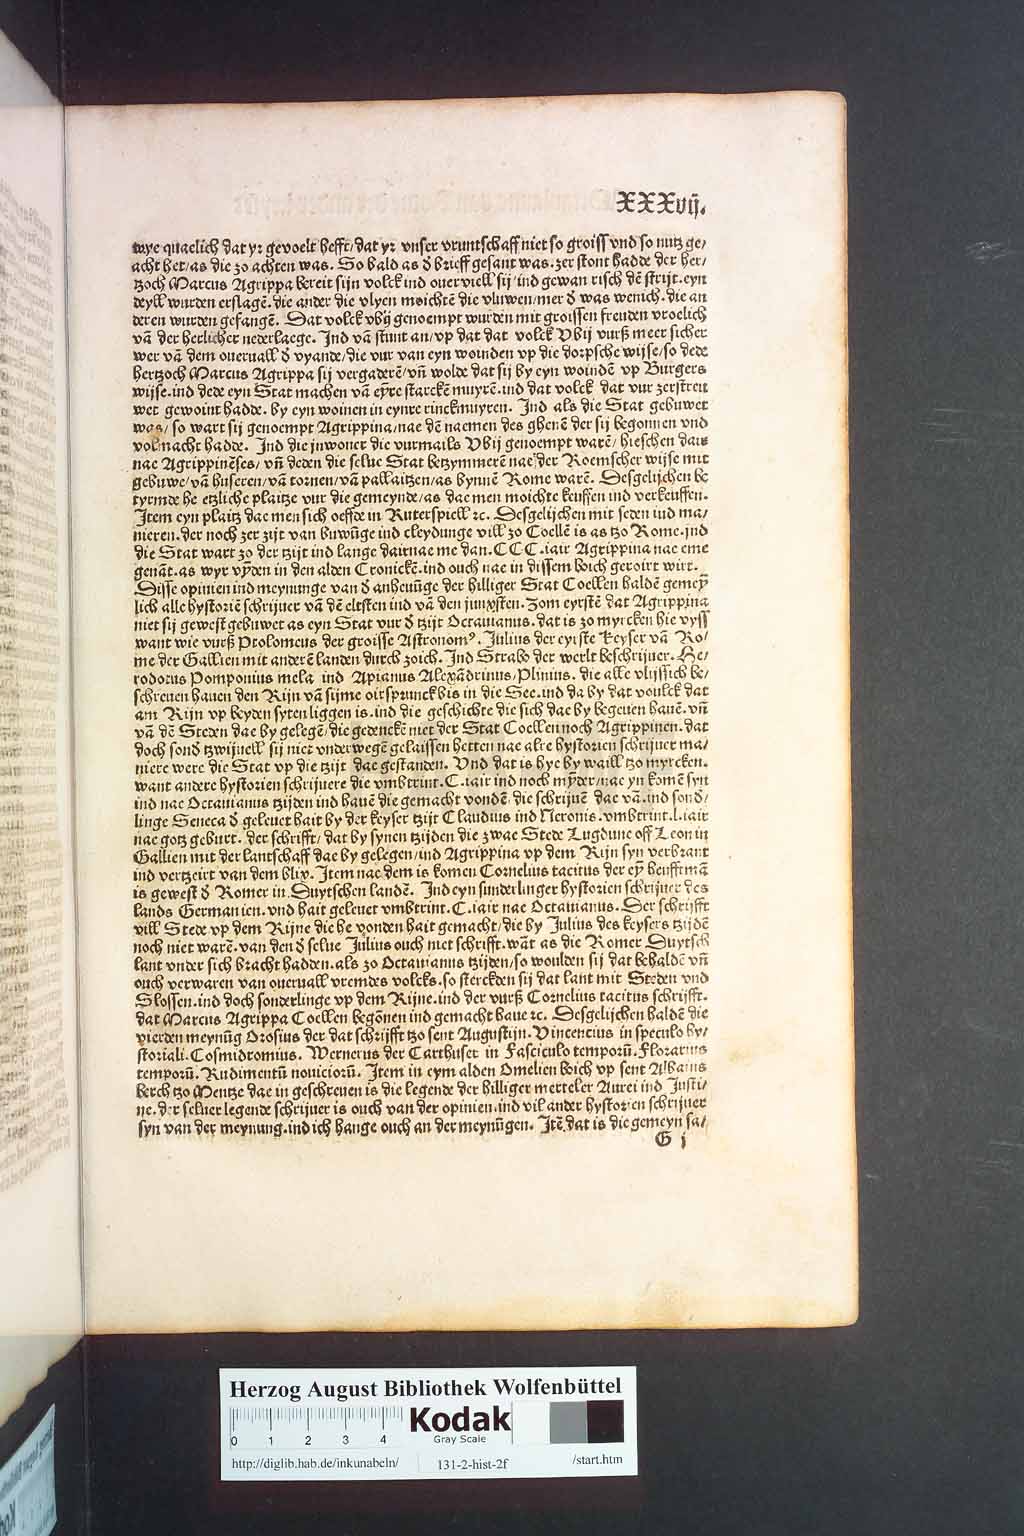 XXXvij.
wye quaelich dat yr gevoelt hefft/dat yr vnser vruntschaff niet so groiss vnd so nutz ge/
acht het/as die zo achten was. So bald as d̕ brieff gesant was. zer stont hadde der her/
tzoch Marcus Agrippa bereit sijn volck ind ouerviell sij ind gewan risch dē strijt. eyn
deyll wurden erslagē. die ander die vlyen moichtē die vluwen/mer d̕ was wenich. die an
deren wurden gefangē. Dat volck vbij genoempt wurden mit groissen freuden vroelich
vā der herlicher nederlaege. Ind vā stunt an/vp dat dat volck Vbij vurß meer sicher
wer vā dem oueruall d̕ vyande/die vur van eyn woinden vp die dorpsche wijse/so dede
hertzoch Marcus Agrippa sij vergaderē/vn̄ wolde dat sij by eyn woindē vp Burgers
wijse. ind dede eyn Stat machen vā eyre starckē muyrē. ind dat volck dat vur zerstreu
wet gewoint hadde. by eyn woinen in eynre rinckmuyren. Ind als die Stat gebuwet
was/ so wart sij genoempt Agrippina/nae dē naemen des ghenē der sij begonnen vnd
volmacht hadde. Ind die jnwoner die vurmails Vbij genoempt warē/ hieschen dair
nae Agrippinēses/ vn̄ deden die selue Stat betzymmerē nae der Roemscher wijse mit
gebuwe/vā huseren/vā tornen/vā pallaitzen/as bynnē Rome warē. Desgelijchen be
tyrmde he etzliche plaitze vur die gemeynde/as dae men moichte keuffen ind verkeuffen.
Item eyn plaitz dae men sich oeffde in Ruterspiell ꝛc. Desgelijchen mit seden ind ma/
nieren. der noch zer zijt van buwūge ind cleydunge vill zo Coellē is as tzo Rome. jnd
die Stat wart zo der tzijt ind lange dairnae me dan. CCC. iair Agrippina nae eme
genāt. as wyr vȳden in den alden Cronickē. ind ouch nae in dissem boich geroirt wirt.
Disse opinien ind meynunge van d̕ anheuūge der hilliger Stat Coellen haldē gemeȳ
lich alle hystoriē schrijuer vā dē eltsten ind vā den jungsten. Zom eyrstē dat Agrippina
niet sij gewest gebuwet as eyn Stat vur d̕ tzijt Octauianus. dat is zo myrcken hie vyss
want wie vurß Ptolomeus der groisse Astronomꝰ. Julius der eyrste Keyser vā Ro/
me der Gallien mit anderē landen durch zoich. Ind Strabo der werlt beschrijuer. He/
rodotus Pomponius mela ind Apianus Alexādrinus/Plinius. die alle vlijssich be/
schreuen hauen den Rijn vā sijme oirsprunck bis in die See. ind da by dat voulck dat
am Rijn vp beyden syten liggen is. ind die geschichte die sich dae by begeuen hauē. vn̄
vā dē Steden dae by gelegē/die gedenckē niet der Stat Coellen noch Agrippinen. dat
doch sond̕ tzwijuell sij niet vnderwegē gelaissen hetten nae alre hystorien schrijuer ma/
niere were die Stat vp die tzijt dae gestanden. Vnd dat is hye by waill tzo myrcken.
want andere hystorien schrijuere die vmbtrint. C. iair ind noch mȳder/nae yn komē syn
ind nae Octauianus tzijden ind hauē die gemacht vondē/die schrijuē dae vā. ind sond̕/
linge Seneca d̕ geleuet hait by der keyser tzijt Claudius ind Neronis. vmbtrint. l. iair
nae gotz geburt. der schrifft/ dat by synen tzijden die zwae Stede Lugdune off Leon in
Gallien mit der lantschaff dae by gelegen/ind Agrippina vp dem Rijn syn verbrant
ind vertzeirt van dem blix. Item nae dem is komen Cornelius tacitus der eȳ heufftmā
is gewest d̕ Romer in Duytschen landē. Ind eyn sunderlinger hystorien schrijuer des
lands Germanien. vnd hait geleuet vmbtrint. C. iair nae Octauianus. Der schrijfft
vill Stede vp dem Rijne die he vonden hait gemacht/die by Julius des keysers tzijdē
noch niet warē. van den d̕ selue Julius ouch niet schrifft. wāt as die Romer Duytsch
lant vnder sich bracht hadden. als zo Octauianus tzijden/so woulden sij dat behaldē vn̄
ouch verwaren van ouervall vremdes volcks. so sterckden sij dat lant mit Steden vnd
Slossen. ind doch sonderlinge vp dem Rijne. ind der vurß Cornelius tacitus schrijfft.
dat Marcus Agrippa Coellen begōnen ind gemacht haue ꝛc. Desgelijchen haldē die
vierden meynūg Orosius der dat schrijfft tzo sent Augustijn. Vincencius in speculo hy/
storiali. Cosmidromius. Wernerus der Carthuser in Fasciculo temporū. Florarius
temporū. Rudimentū nouiciorū. Item in eym alden Omelien boich vp sent Albains
berch tzo Mentze dae in geschreuen is die legende der hilliger merteler Aurei ind Justi/
ne. der seluer legende schrijuer is ouch van der opinien. ind vil ander hystorien schrijuer
syn van der meynung. ind ich hange ouch an der meynūgen. Itē. dat is die gemeyn sa/
G j
Herzog August Bibliothek Wolfenbüttel
0 1 2 3 4
Kodak
Gray Scale
http://diglib.hab.de/inkunabeln/ 131-2-hist-2f /start.htm